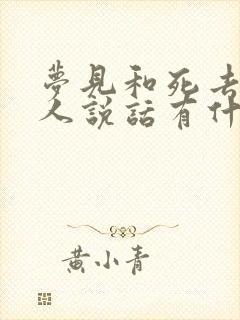 夢見和死去
人說話有什
黃小青